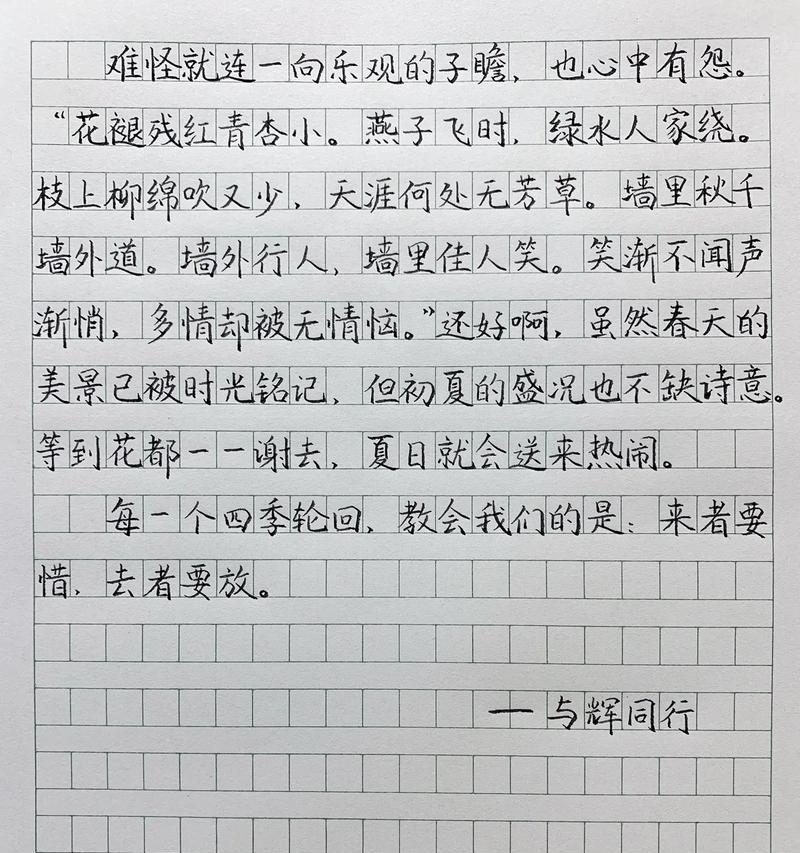 难怪就连一向乐观的子瞻，也心中有怨。
“花褪残红青杏小。燕子飞时，绿水人家绕。
枝上柳绵吹又少，天涯何处无芳草。墙里秋千
墙外道。墙外行人，墙里佳人笑。笑渐不闻声
渐悄，多情却被无情恼。”还好啊，虽然春天的
美景已被时光铭记，但初夏的盛况也不缺诗意。
等到花都一一谢去，夏日就会送来热闹。
每一个四季轮回，教会我们的是：来者要
惜，去者要放。
—与辉同行